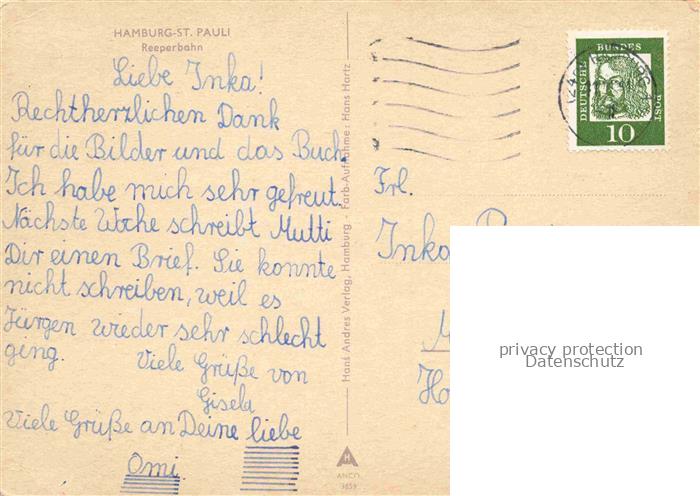 HAMBURG-ST. PAULI
Reeperbahn
Liebe Inka!
Rechtherzlichen Dank
für die Bilder und das Buch.
Ich habe mich sehr gefreut.
Nächste Woche schreibt Mutti
Dir einen Brief. Sie konnte
nicht schreiben, weil es
Jürgen wieder sehr schlecht
ging.
Viele Grüße von
Gisela
Viele Grüße an Deine liebe
Omi.
Hans Andres Verlag, Hamburg - Farb-Aufnahme: Hans Hartz
ANCO
DEUTSCHE BUNDES POST
10
Frl.
Inka
privacy protection
Datenschutz